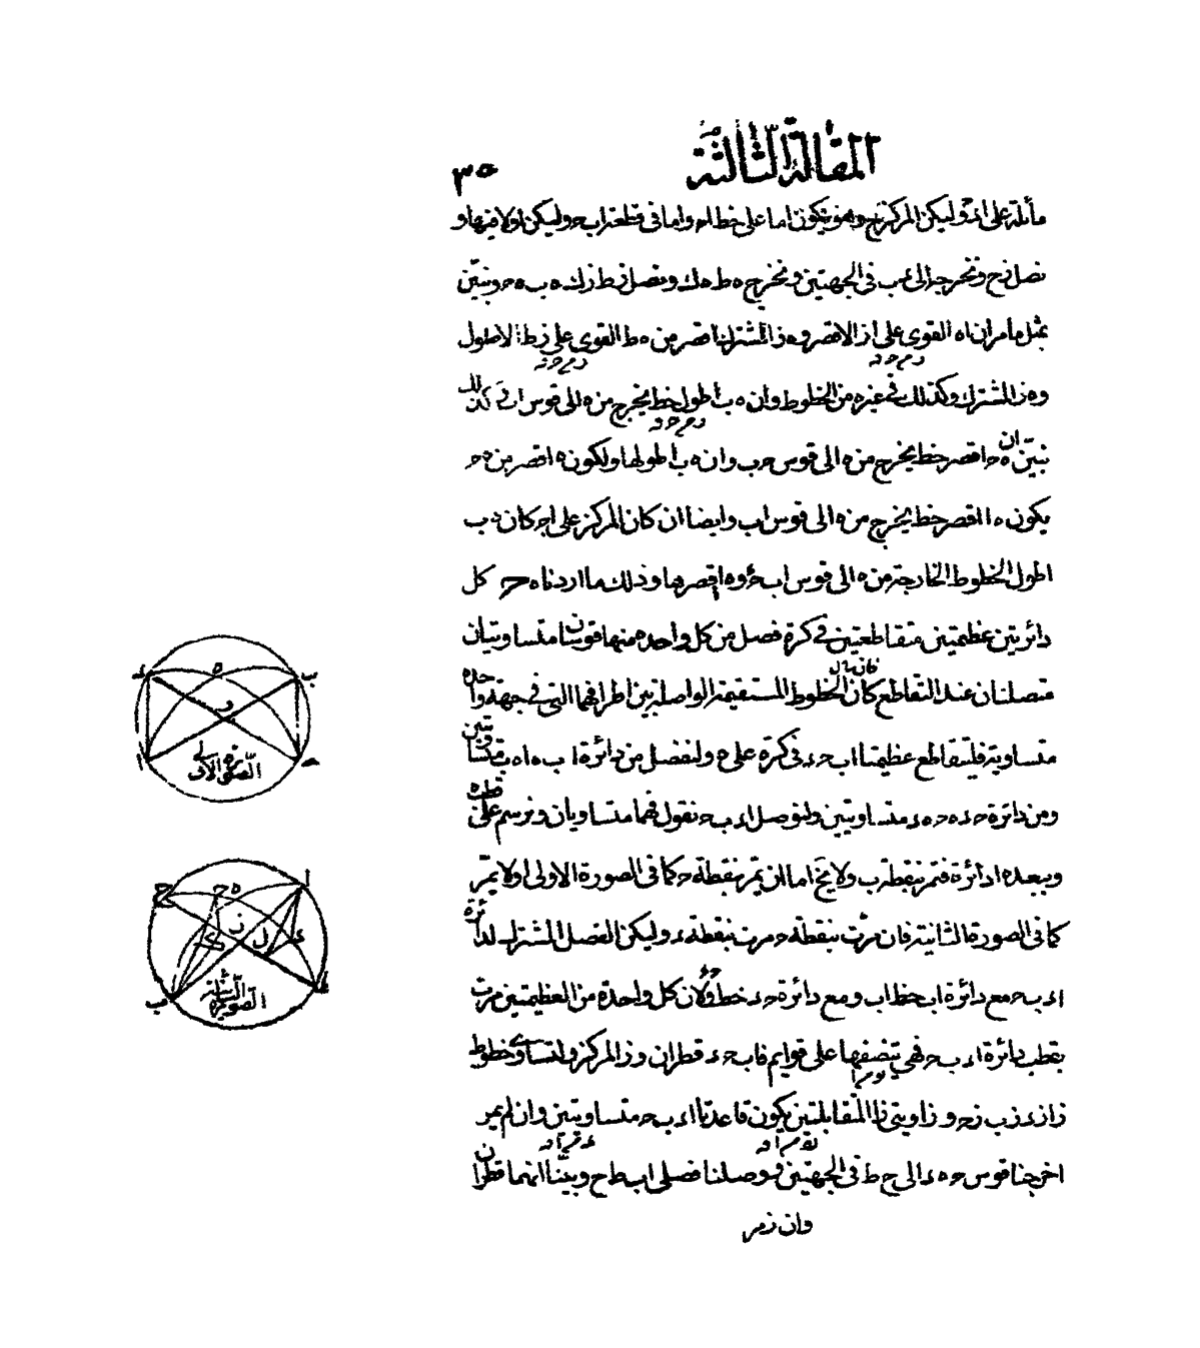 المقالة الثالثة
٣٥
مائلة على اد وليكن المركز ح وهو يكون اما على خط اح واما فى قطعة اب ح وليكن اولا فيها و
نصل زح ونخرجه الى ع ب فى الجهتين ونخرج ه ط ه ك ونصل ز ط ز ك ه ب ه ح ونبيّن
بمثل ما مر ان اه القوى على از الاقصر و ه ز المشترك اقصر من ه ط القوى على ز ط الاطول
و ه ز المشترك وكذلك فى غيره من الخطوط وان ه ب اطول خط يخرج من ه الى قوس اب وكذلك
نبيّن ان ه ح اقصر خط يخرج من ه الى قوس ح ب وان ه ب اطولها ولكون ه ا اقصر من ه ح
يكون ه ا اقصر خط يخرج من ه الى قوس اب وايضا ان كان المركز على اح كان ه ب
اطول الخطوط الخارجة من ه الى قوس اب ح و ه ا اقصرها وذلك ما اردناه ح كل
دائرتين عظيمتين متقاطعتين فى كرة فصل من كل واحدة منهما قوسان متساويتان
متصلتان عند التقاطع كان الخطوط المستقيمة الواصلة بين اطرافهما التى فى جهة واحدة
متساوية فليتقاطع عظيمتا اب ح د فى كرة على ه ولنفصل من دائرة اب ه ا ه ب متساويتين
ومن دائرة ح د ه ح ه د متساويتين ولنوصل اد ب ح نقول فهما متساويان ونرسم على نقطة ه
وببعد ه ا دائرة فتمر بنقطة ب ولا يخ اما ان يمرّ بنقطة ح كما فى الصورة الاولى او لا يمرّ
كما فى الصورة الثانية فان مرّت بنقطة ح مرت بنقطة د وليكن الفصل المشترك لدائرة
اد ب ح مع دائرة اب خط اب ومع دائرة ح د خط ح د ولان كل واحدة من العظيمتين مرت
بقطب دائرة اد ب ح فهى تنصفها على قوايم فاب ح د قطران و ز المركز ولتساوى خطوط
ز ا ز د ز ب ز ح و زاويتى ز المتقابلتين يكون قاعدتا اد ب ح متساويتين وان لم يمر
اخرجنا قوس ح ه د الى ح ط فى الجهتين ووصلنا فصلى اب ط ح وبيّنا انهما قطران
وان زمر
الصورة الاولى
الصورة الثانية